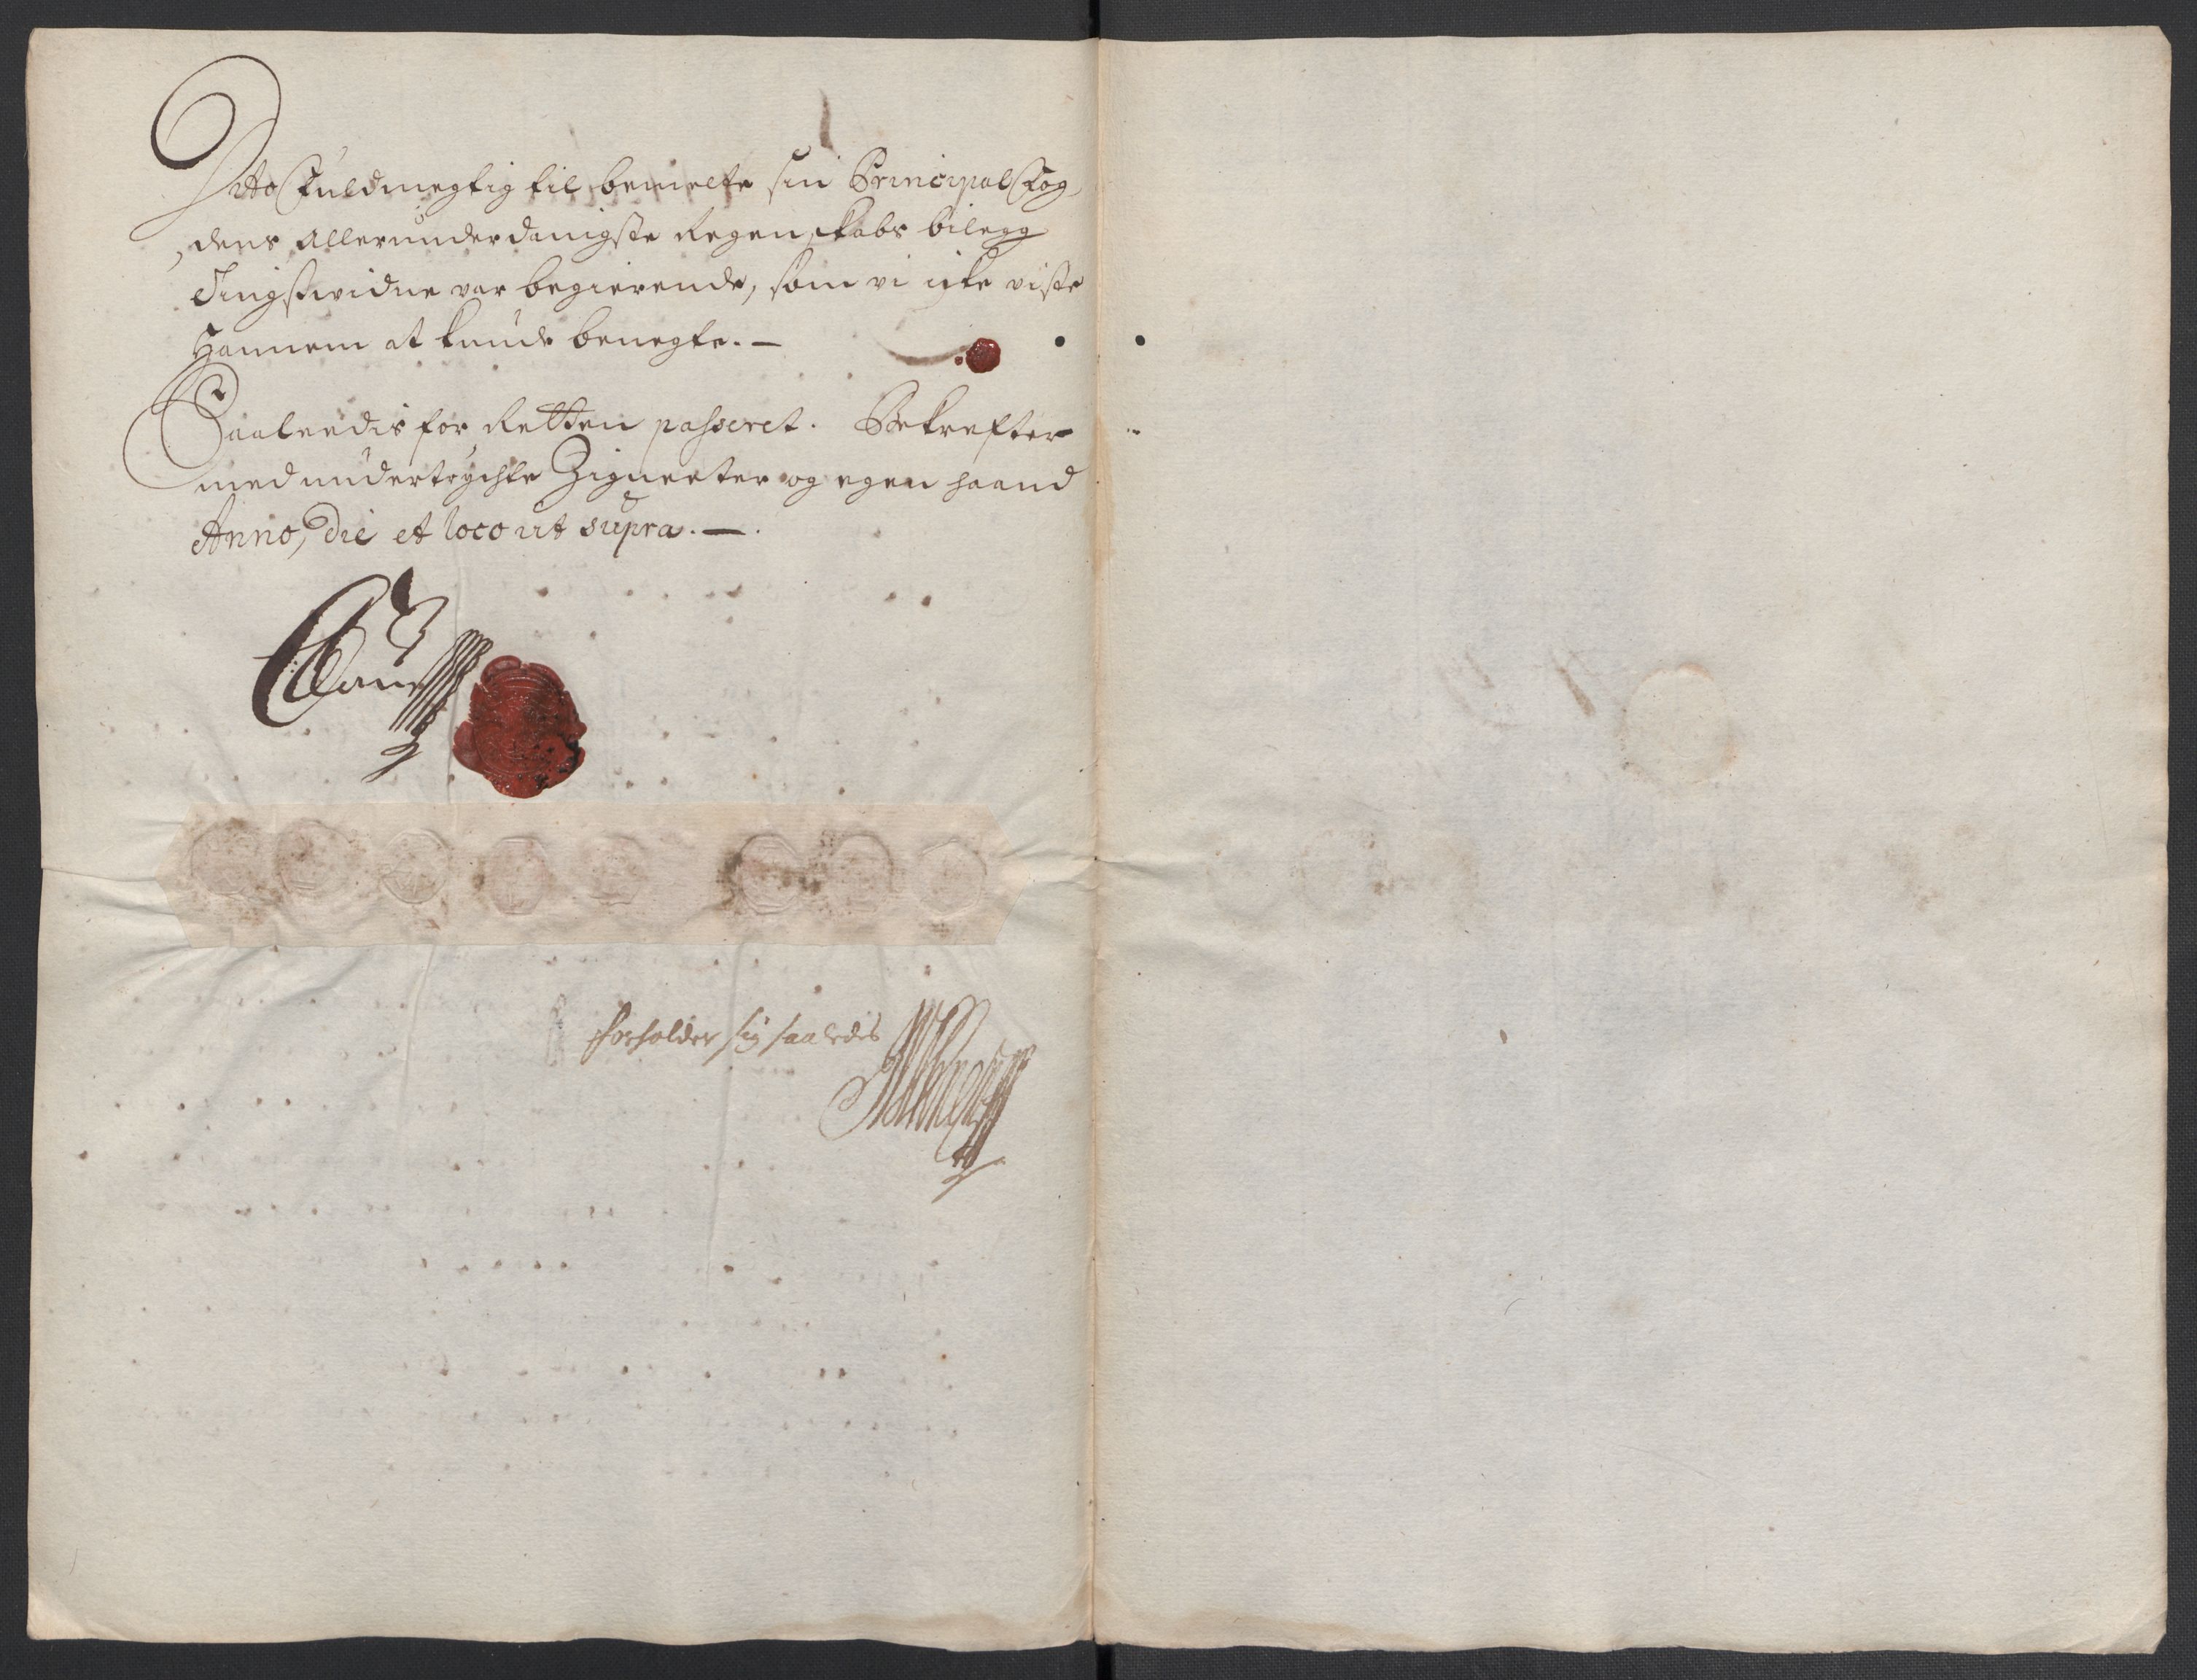 Fuldmegtig til bemelte sin Principal Fog¬
dens Allerunderdanigste Regenskabs bilegg
Tingswidne var begierende, som vi icke viste
Hannem at kunde benegte. —
Saaleedis for Retten passeret. Bekrefter
med undertrychte Zigneeter og egen haand
Anno, die et loco ut supra. —.
forholder sig saaledis